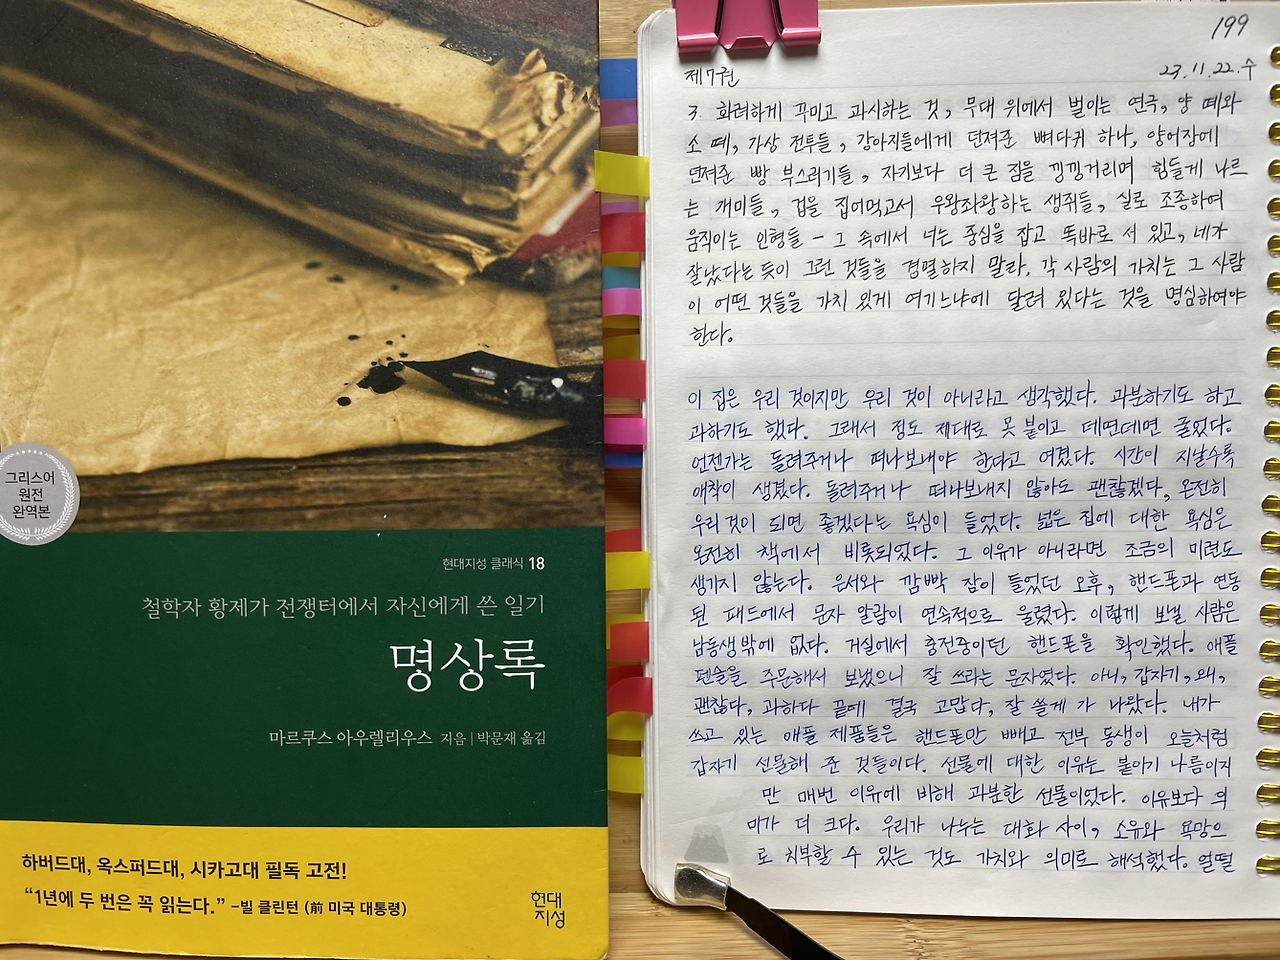 그리스어
원전
완역본
현대지성 클래식 18
철학자 황제가 전쟁터에서 자신에게 쓴 일기
명상록
마르쿠스 아우렐리우스 지음 | 박문재 옮김
하버드대, 옥스퍼드대, 시카고대 필독 고전!
“1년에 두 번은 꼭 읽는다.” –빌 클린턴 (前 미국 대통령)
현대
지성
199
제7권
23.11.22.수
3. 화려하게 꾸미고 과시하는 것, 무대 위에서 벌이는 연극, 양 떼와
소 떼, 가상 전투들, 강아지들에게 던져준 뼈다귀 하나, 양어장에
던져준 빵 부스러기들, 자기보다 더 큰 짐을 낑낑거리며 힘들게 나르
는 개미들, 겁을 집어먹고서 우왕좌왕하는 생쥐들, 실로 조종하여
움직이는 인형들 – 그 속에서 너는 중심을 잡고 똑바로 서 있고, 네가
잘났다는 듯이 그런 것들을 경멸하지 말라. 각 사람의 가치는 그 사람
이 어떤 것들을 가치 있게 여기느냐에 달려 있다는 것을 명심하여야
한다.
이 집은 우리 것이지만 우리 것이 아니라고 생각했다. 과분하기도 하고
과하기도 했다. 그래서 정도 제대로 못 붙이고 데면데면 굴었다.
언젠가는 돌려주거나 떠나보내야 한다고 여겼다. 시간이 지날수록
애착이 생겼다. 돌려주거나 떠나보내지 않아도 괜찮겠다, 온전히
우리 것이 되면 좋겠다는 욕심이 들었다. 넓은 집에 대한 욕심은
온전히 책에서 비롯되었다. 그 이유가 아니라면 조금의 미련도
생기지 않는다. 은서와 깜빡 잠이 들었던 오후, 핸드폰과 연동
된 패드에서 문자 알람이 연속적으로 울렸다. 이렇게 보낼 사람은
남동생밖에 없다. 거실에서 충전중이던 핸드폰을 확인했다. 애플
펜슬을 주문해서 보냈으니 잘 쓰라는 문자였다. 아니, 갑자기, 왜,
괜찮다, 과하다 끝에 결국 고맙다, 잘 쓸게 가 나왔다. 내가
쓰고 있는 애플 제품들은 핸드폰만 빼고 전부 동생이 오늘처럼
갑자기 선물해 준 것들이다. 선물에 대한 이유는 붙이기 나름이지
만 매번 이유에 비해 과분한 선물이었다. 이유보다 의
미가 더 크다. 우리가 나누는 대화 사이, 소유와 욕망으
로 치부할 수 있는 것도 가치와 의미로 해석했다. 얼떨